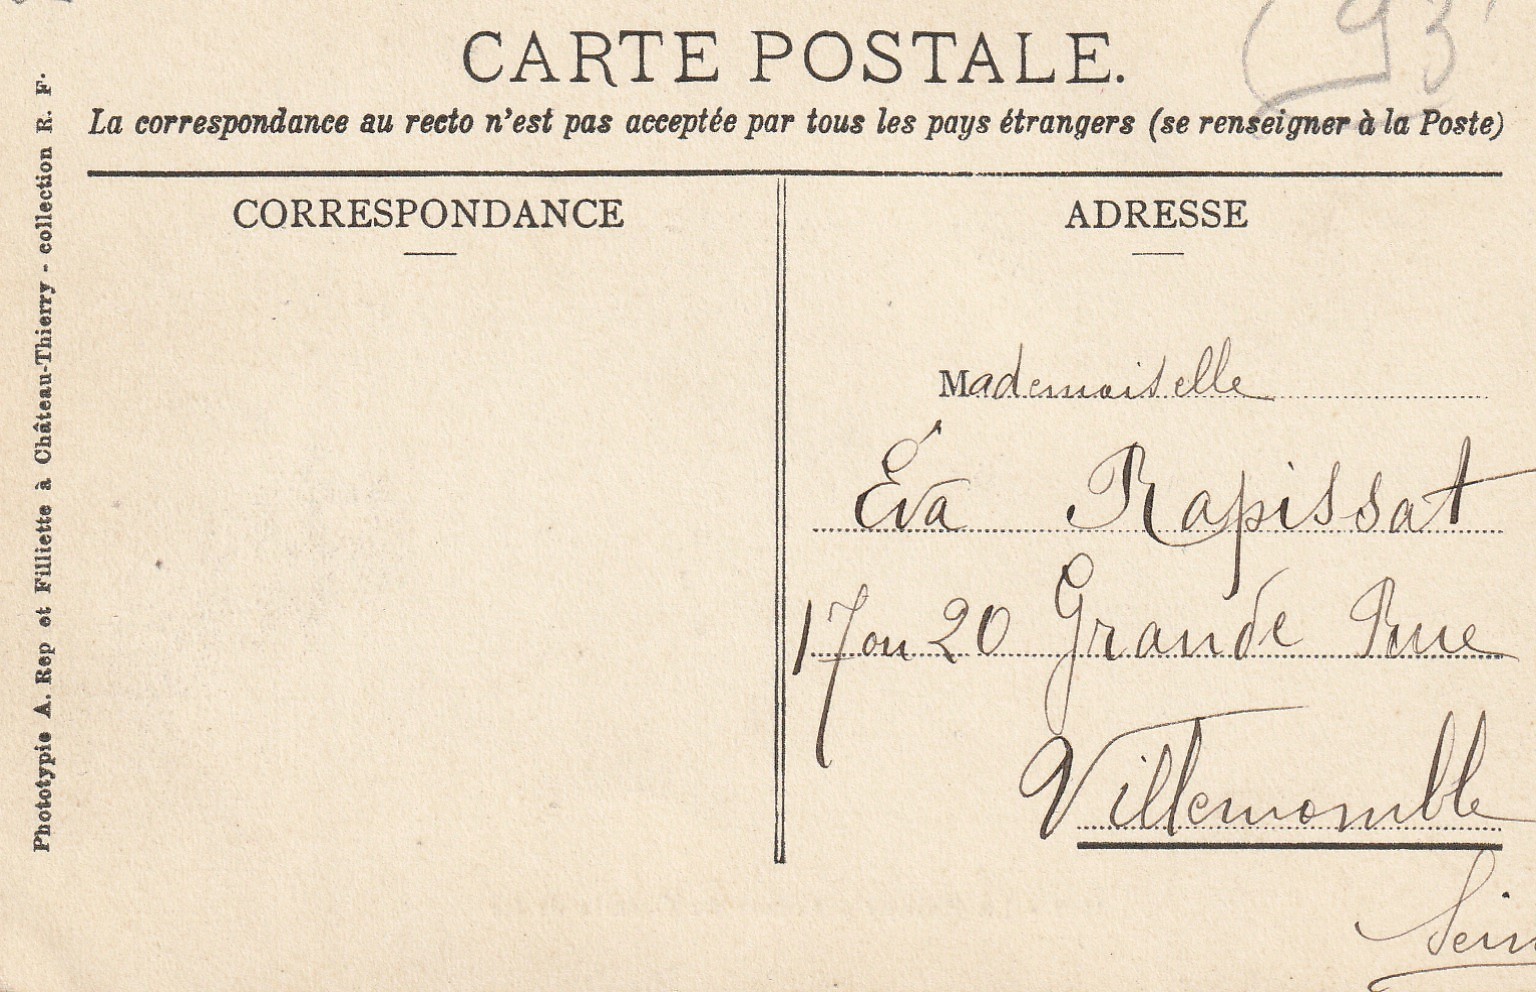 93
CARTE POSTALE.
La correspondance au recto n'est pas acceptée par tous les pays étrangers (se renseigner à la Poste)
Phototypie A. Rep et Filliette à Château-Thierry - collection R. F.
CORRESPONDANCE
ADRESSE
Mademoiselle
Éva Rapissat
17 ou 20 Grande Rue
Villemomble
Sein